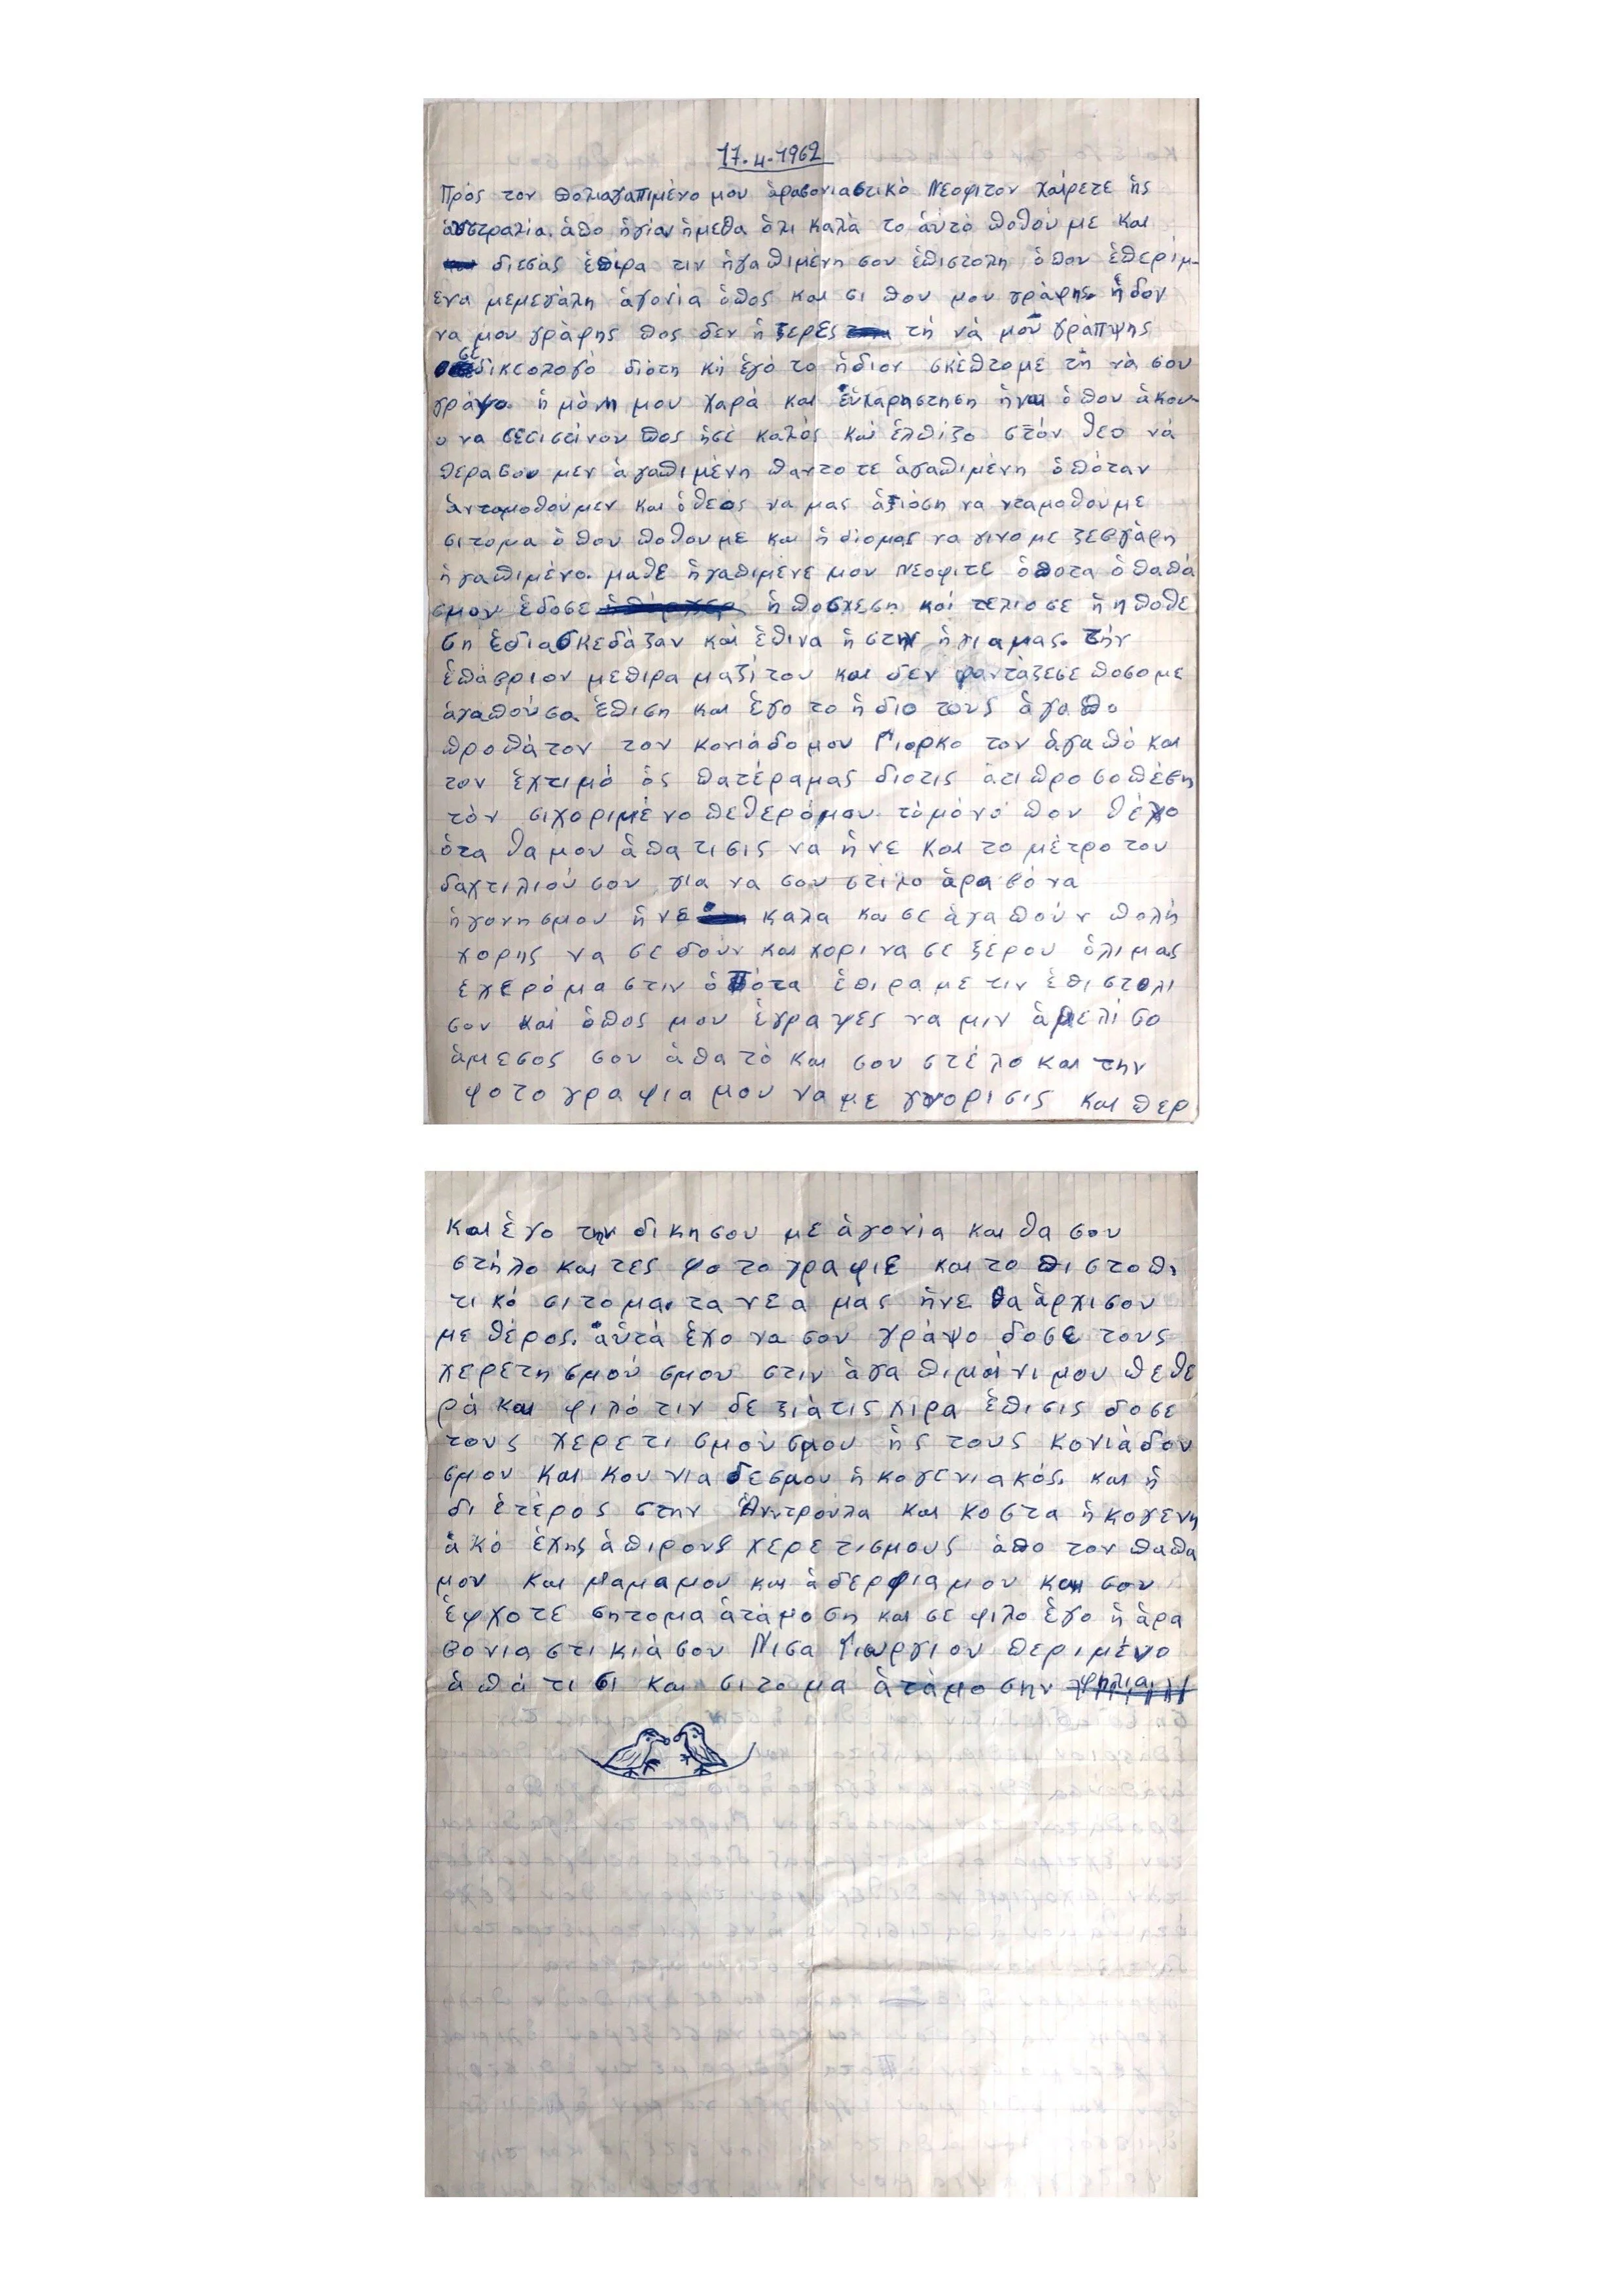 17.4.1962
Πρός τον πολιαγαπιμένο μου ἀραβονιαστικὀ Νεοφιτον χαίρετε ἠς
ἀυστραλία. ἀπο ἠγίαν ἠμεθα ὀλι καλὰ το ἀὐτὀ ποθοὐμε και
διεσάς ἐπιρα τιν ἠγαπιμἐνη σου ἐπιστολη ὀπου ἐπερίμ-
ενα μεμεγἀλη ἀγονία ὀπος και σι που μου γράφης. ἠδου
να μου γράφης πος δεν ἠξερες τἠ νἀ μοῦ γρἀπψης
σἐ δικεολογὀ διὀτη κη ἐγὀ το ἠδιον σκἐπτομε τἠ νἀ σου
γράψο. ἠ μὀνη μου χαρἀ και εὐχαρηστηση ἠναι ὀπου ἀκου-
ο να σεσιστἱνου πος ἠσἐ καλὀς και ἐλπίζο στὀν θεο νἀ
περασου μεν ἀγαπιμἐνη παντοτε ἀγαπιμἐνη ὀπὀταν
ἀνταμοθοὐμεν και ὀθεὀς να μας ἀξιὀση να νταμοθουμε
σιτομα ὀπου ποθουμε και ἠδιομας να γινομε ζεβγἀρη
ἠγαπιμἐνο. μαθε ἠγαπιμἐνε μου Νεοφιτε ὀποτα ὀ παπἀ
σμου ἐδοσε ἠποσχεση και τελιοσε ἠ ηποθε
ση ἐδιασκεδἀζαν και ἐπινα ἠστην ἠγιαμας. τἠν
ἐπἀβριον μεπιρα μαζἰ του και δεν φαντἀζεσε ποσο με
ἀγαποὐσα ἐπιση και ἐγο το ἠδιο τους ἀγαπο
προπἀτον τον κονιἀδομου Γιορκο τον ἀγαπὀ και
τον ἐχτιμὀ ὀς πατἐραμας διοτις ἀτιπροσοπἐβη
τὀν σιχοριμἐνο πεθερὀμου τὀμὀνὀ που θἐλο
ὀτα θα μου ἀπατισις να ἠνε και το μἐτρο του
δαχτιλιοὐ σου για να σου στιλο ἀραβὀνα
ἠγονησμου ἠνε καλα και σε ἀγαποὐν πολἠ
χορης να σε δοὐν και χορι να σε ξἐρου ὀλι μας
ἐχερὀμαστιν ὀπὀτα ἐπιραμε τιν ἐπιστολι
σου και ὀπος μου ἐγραψες να μιν ἀμελἱσο
ἀμεσος σου ἀπατὀ και σου στἐλο και την
φοτογραφια μου να με γνορισις και περ
και ἐγο την δικησου με ἀγονἰα και θα σου
στἠλο και τες φοτογραφιε και το πιστοπι
τικὀ σιτομα. τα νεα μας ἠνε θα ἀρχισου
με θἐρος. ἀὐτἀ ἐχο να σου γρἀψο δοσε τους
χερετησμοὐ σμου στιν ἀγαπιμἐνι μου πεθε
ρἀ και φιλὀ τιν δεξιἀτις χἱρα ἐπισις δοσε
τους χερετισμοὐσμου ἠς τους κονιἀδου
σμου και κουνιαδεσμου ἠκογενιακὀς. και ἠ
διετἐρος στην Ἀντροὐλα και Κοστα ἠκογενη
ἀκὀ ἐχης ἀπιρους χερετισμους ἀπο τον παπα
μου και μαμαμου και ἀδερφιαμου και σου
ἐφχοτε σητομα ἀτἀμοση και σε φιλο ἐγο ἠ ἀρα
βονιαστικιἀ σου Νισα Γιωργιου περιμἐνο
ἀπἀτισι και σιτομα ἀτἀμοσην φηλια